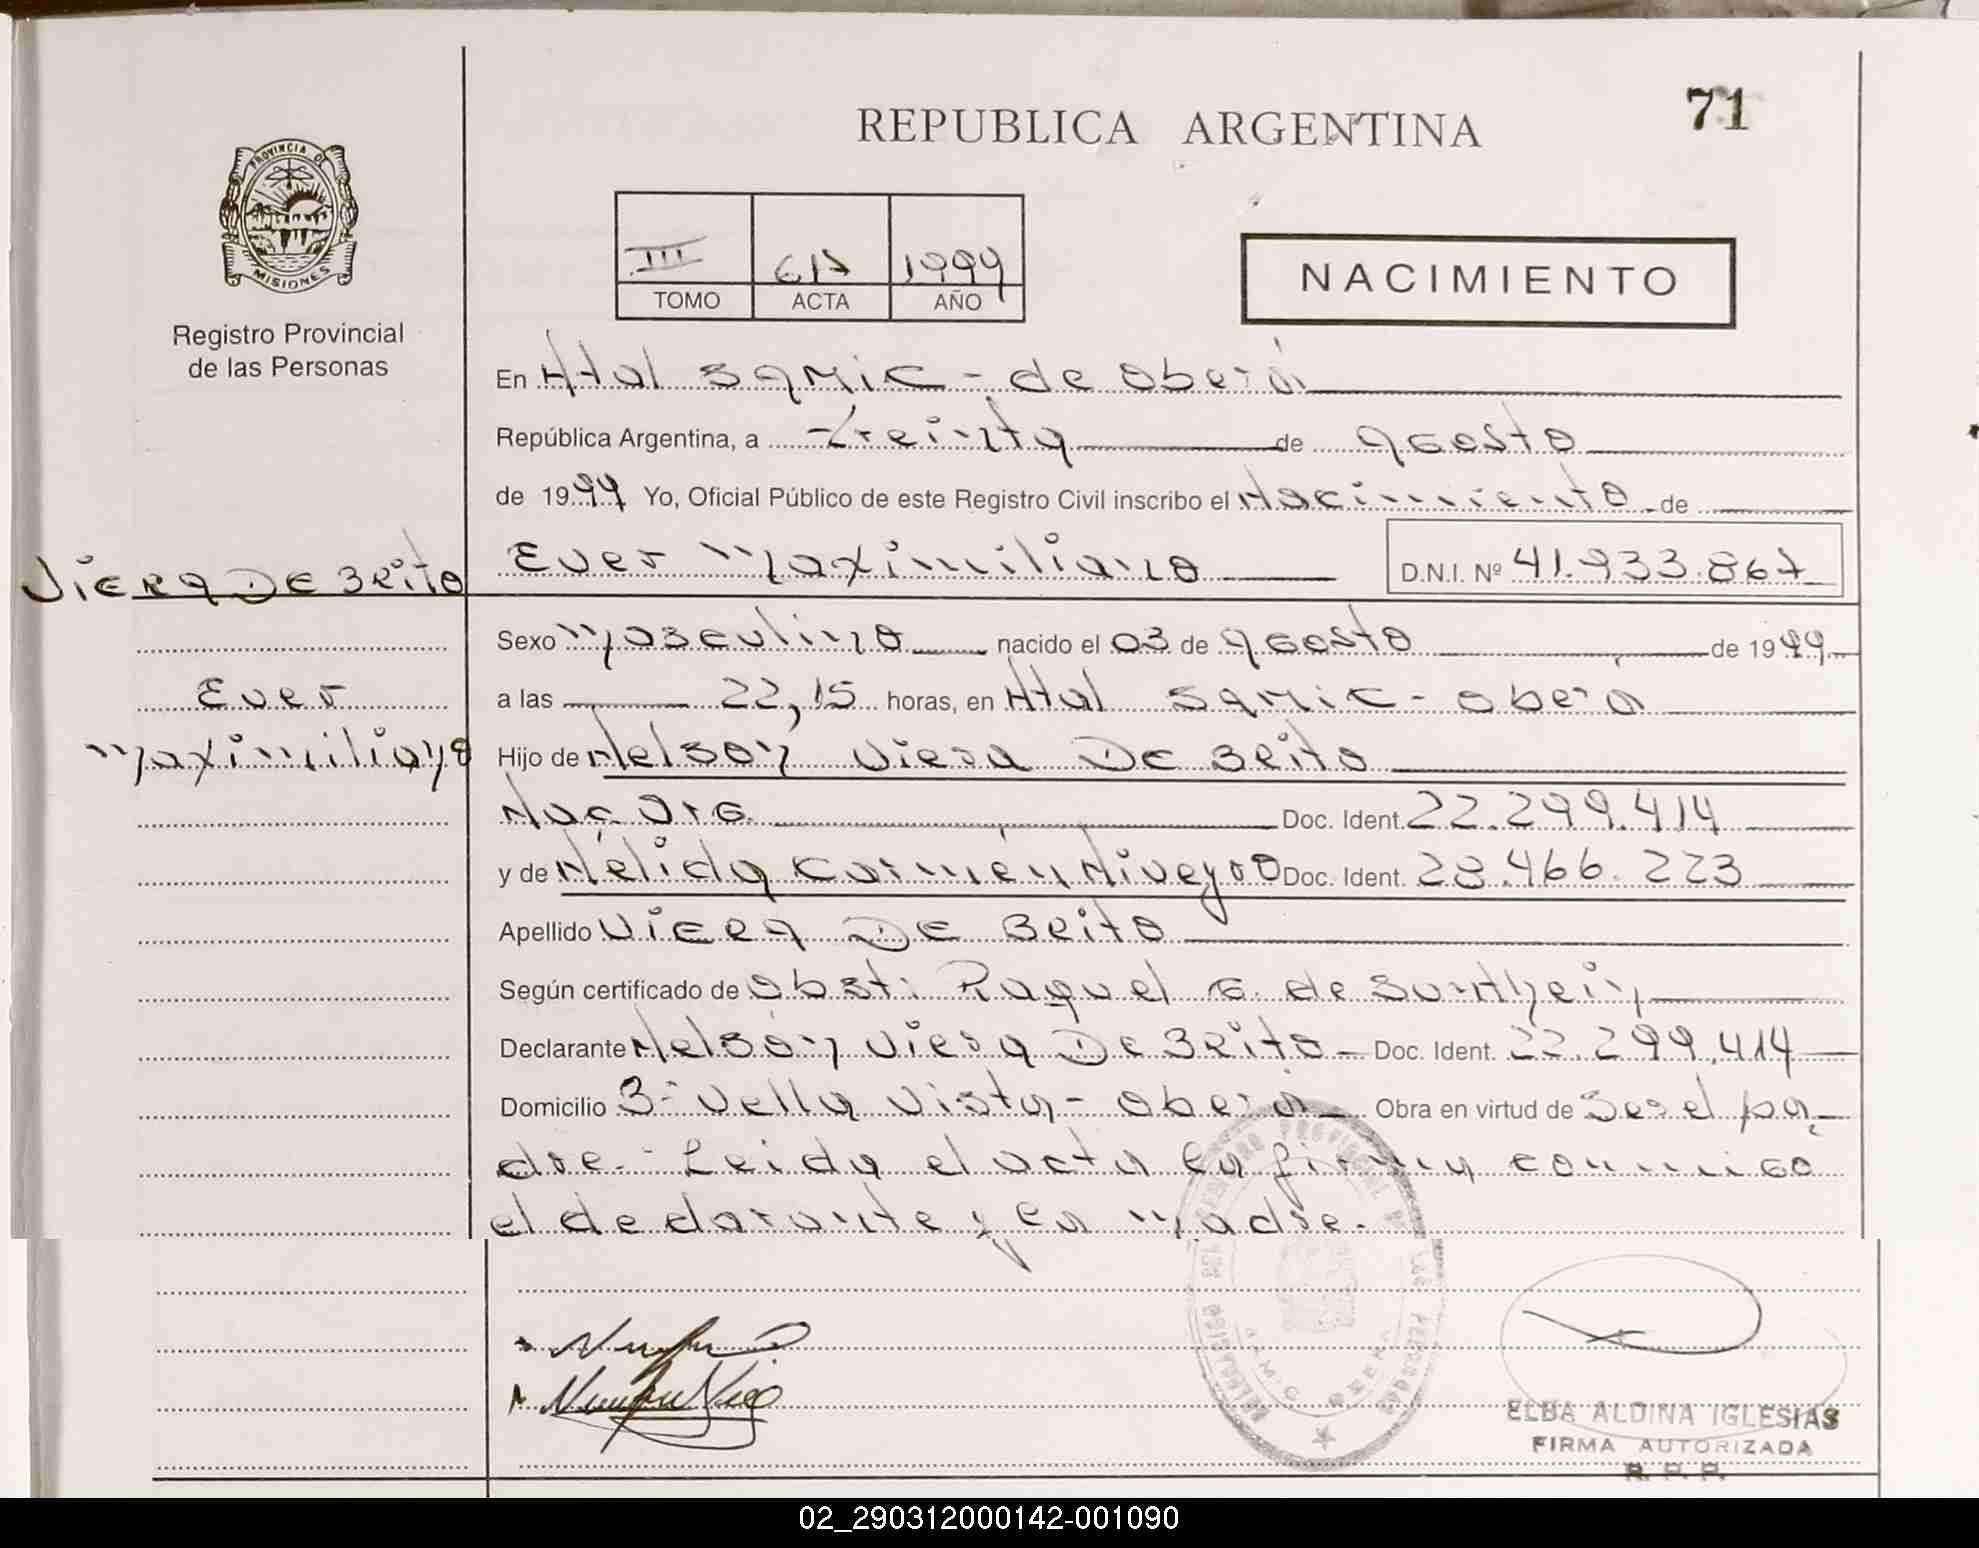 REPUBLICA ARGENTINA
71
PROVINCIA DE
MISIONES
Registro Provincial
de las Personas
III 617 1999
TOMO ACTA AÑO
NACIMIENTO
En Htal SAMIC - de Oberá
República Argentina, a treinta de agosto
de 1999 Yo, Oficial Público de este Registro Civil inscribo el Nacimiento de
Viera De Brito
Ever Maximiliano D.N.I. Nº 41.933.867
Sexo Masculino nacido el 03 de agosto de 1999
Ever
a las 22,15 horas, en Htal SAMIC - Oberá
Maximiliano
Hijo de Nelson Viera De Brito
Nac. Arg. Doc. Ident. 22.299.414
y de Nélida Carmen Niveyro Doc. Ident. 28.466.223
Apellido Viera De Brito
Según certificado de Obst: Raquel G. de
Declarante Nelson Viera De Brito - Doc. Ident. 22.299.414
Domicilio Bº Vella Vista - Oberá Obra en virtud de Ser el pa-
dre. - Leida el acta la firman conmigo
el declarante y la madre.
ELBA ALDINA IGLESIAS
FIRMA AUTORIZADA
R. P. P.
02_290312000142-001090